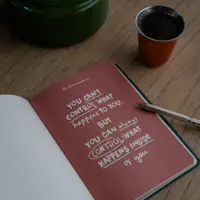 YOU CAN'T
CONTROL WHAT
happens TO YOU,
BUT
YOU CAN always
CONTROL WHAT
HAPPENS INSIDE
of you